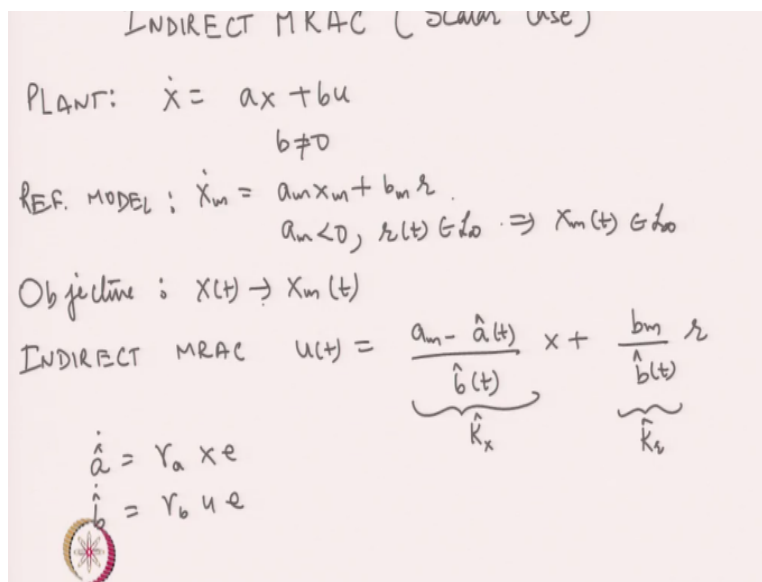 INDIRECT MRAC ( Scalar Case )
PLANT: ẋ = ax + bu
b≠0
REF. MODEL : ẋm = amxm + bm r .
am<0, r(t) ∈ L∞ . ⇒ xm(t) ∈ L∞
Objective : x(t) → xm(t)
INDIRECT MRAC u(t) = (am - â(t))/b̂(t) x + bm/b̂(t) r
K̂x K̂r
â̇ = γa x e
b̂̇ = γb u e